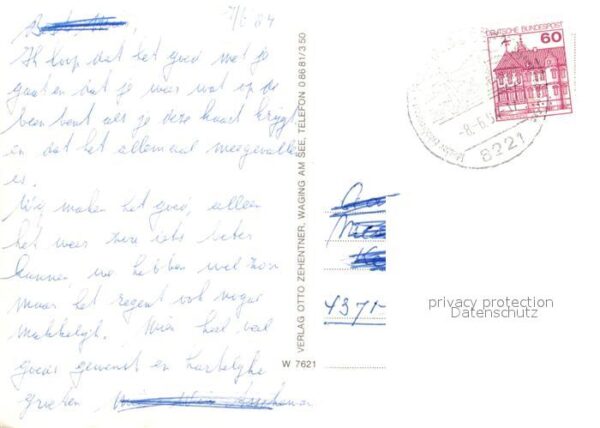 7/6 84
Ik hoop dat het goed met je
gaat en dat je weer wat op de
been bent als je deze kaart krijgt
en dat het allemaal meegevallen
is.
Wij maken het goed, alleen
het weer zou iets beter
kunnen, we hebben wel zon
maar het regent ook nogal
makkelijk. Wien heel veel
goeds gewenst en hartelijke
groeten
VERLAG OTTO ZEHENTNER, WAGING AM SEE, TELEFON 08681/350
W 7621
DEUTSCHE BUNDESPOST
60
-8.6.
8221
4371-
privacy protection
Datenschutz